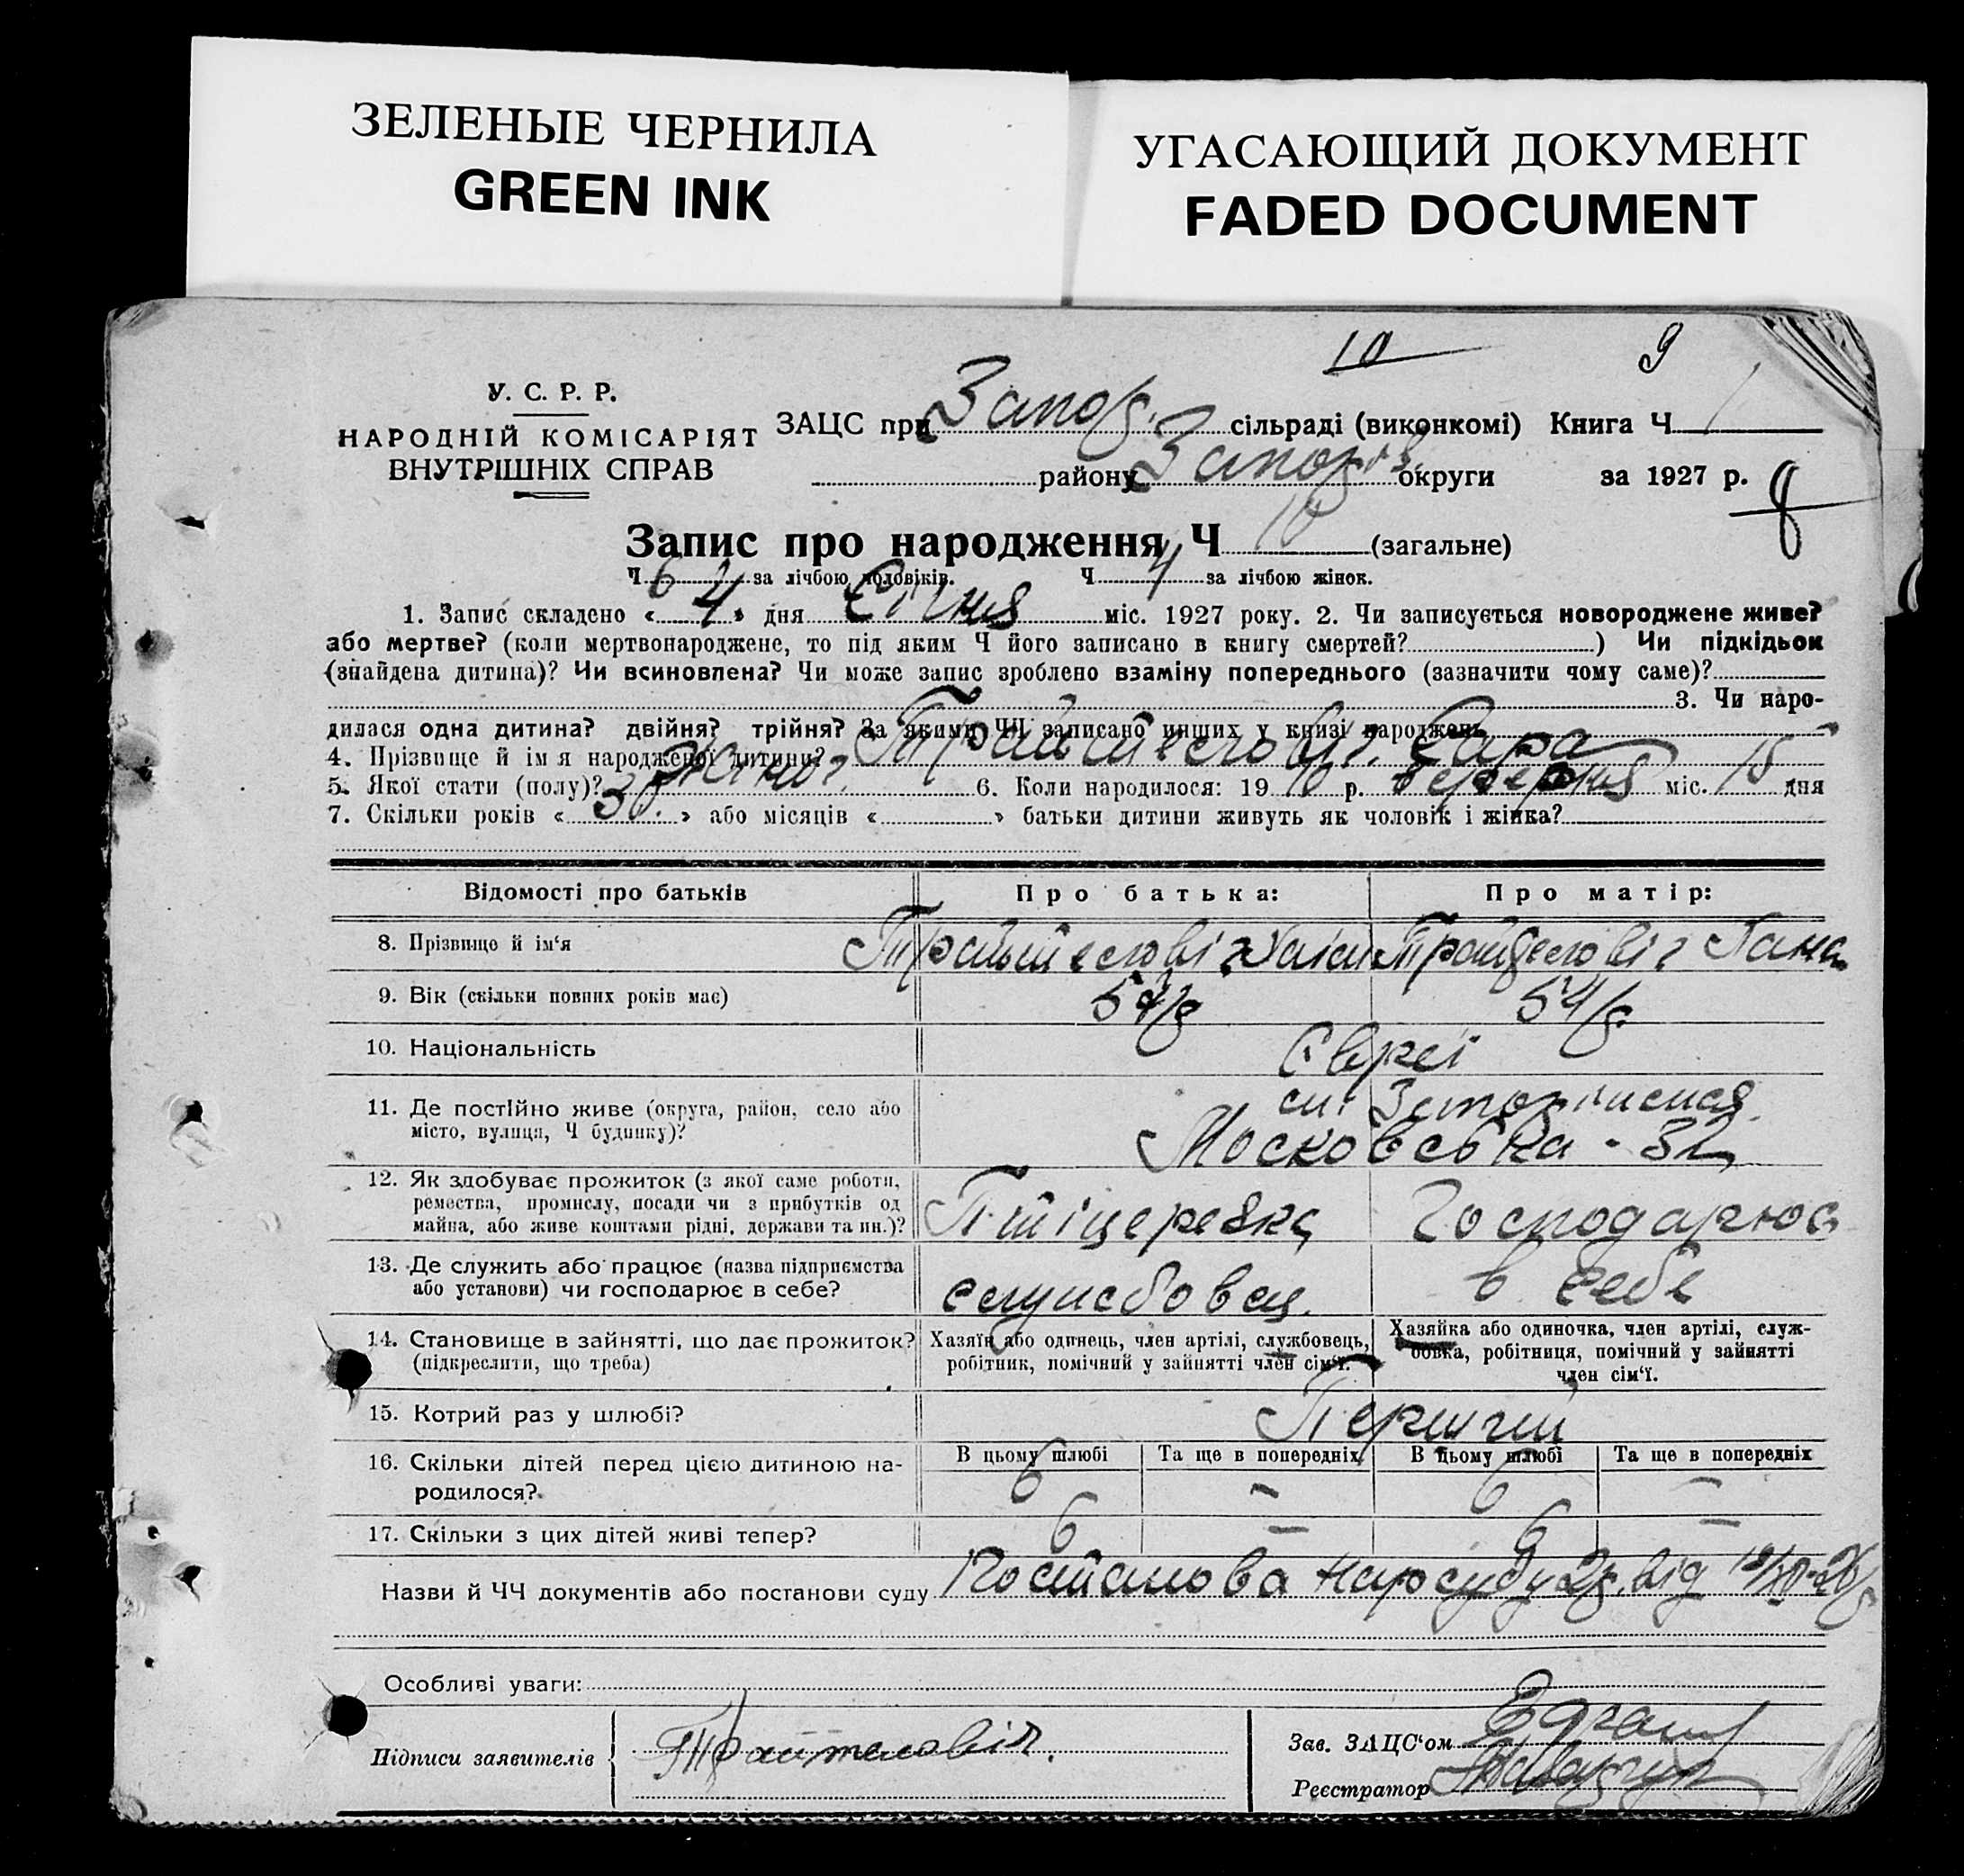 ЗЕЛЕНЫЕ ЧЕРНИЛА
GREEN INK
УГАСАЮЩИЙ ДОКУМЕНТ
FADED DOCUMENT
10 9
У. С. Р. Р.
НАРОДНІЙ КОМІСАРІЯТ
ВНУТРІШНІХ СПРАВ
ЗАЦС при Запор. сільраді (виконкомі) Книга Ч 1
району Запоріз. округи за 1927 р. 8
Запис про народження Ч 10 (загальне)
Ч 6 за лічбою чоловіків. Ч 4 за лічбою жінок.
1. Запис складено « 4 » дня Січня міс. 1927 року. 2. Чи записується новороджене живе?
або мертве? (коли мертвонароджене, то під яким Ч його записано в книгу смертей? ) Чи підкідьок
(знайдена дитина)? Чи всиновлена? Чи може запис зроблено взаміну попереднього (зазначити чому саме)?
3. Чи наро-
дилася одна дитина? двійня? трійня? За якими ЧЧ записано инших у книзі народжень
4. Прізвище й ім я народженої дитини? Сара
5. Якої стати (полу)? Жіноч. 6. Коли народилося: 19 10 р. березня міс. 15 дня
7. Скільки років « 30. » або місяців « » батьки дитини живуть як чоловік і жінка?
Відомості про батьків Про батька: Про матір:
8. Прізвище й ім‘я
9. Вік (скільки повних років має) 54 р.
10. Національність Євреї
11. Де постійно живе (округа, район, село або
місто, вулиця, Ч будинку)? Московська - 32
12. Як здобуває прожиток (з якої саме роботи,
ремества, промислу, посади чи з прибутків од
майна, або живе коштами рідні, держави та ин.)? Господарює
13. Де служить або працює (назва підприємства
або установи) чи господарює в себе? службовец. в себе
14. Становище в зайнятті, що дає прожиток?
(підкреслити, що треба)
Хазяїн або одинець, член артілі, службовець,
робітник, помічний у зайнятті член сім‘ї.
Хазяйка або одиночка, член артілі, служ-
бовка, робітниця, помічний у зайнятті
член сім‘ї.
15. Котрий раз у шлюбі? Перший
16. Скільки дітей перед цією дитиною на-
родилося?
В цьому шлюбі Та ще в попередніх В цьому шлюбі Та ще в попередніх
6 - 6 -
17. Скільки з цих дітей живі тепер? 6 - 6 -
Назви й ЧЧ документів або постанови суду Постанова Нарсуду від
Особливі уваги:
Підписи заявителів
Зав. ЗАЦС‘ом
Реєстратор